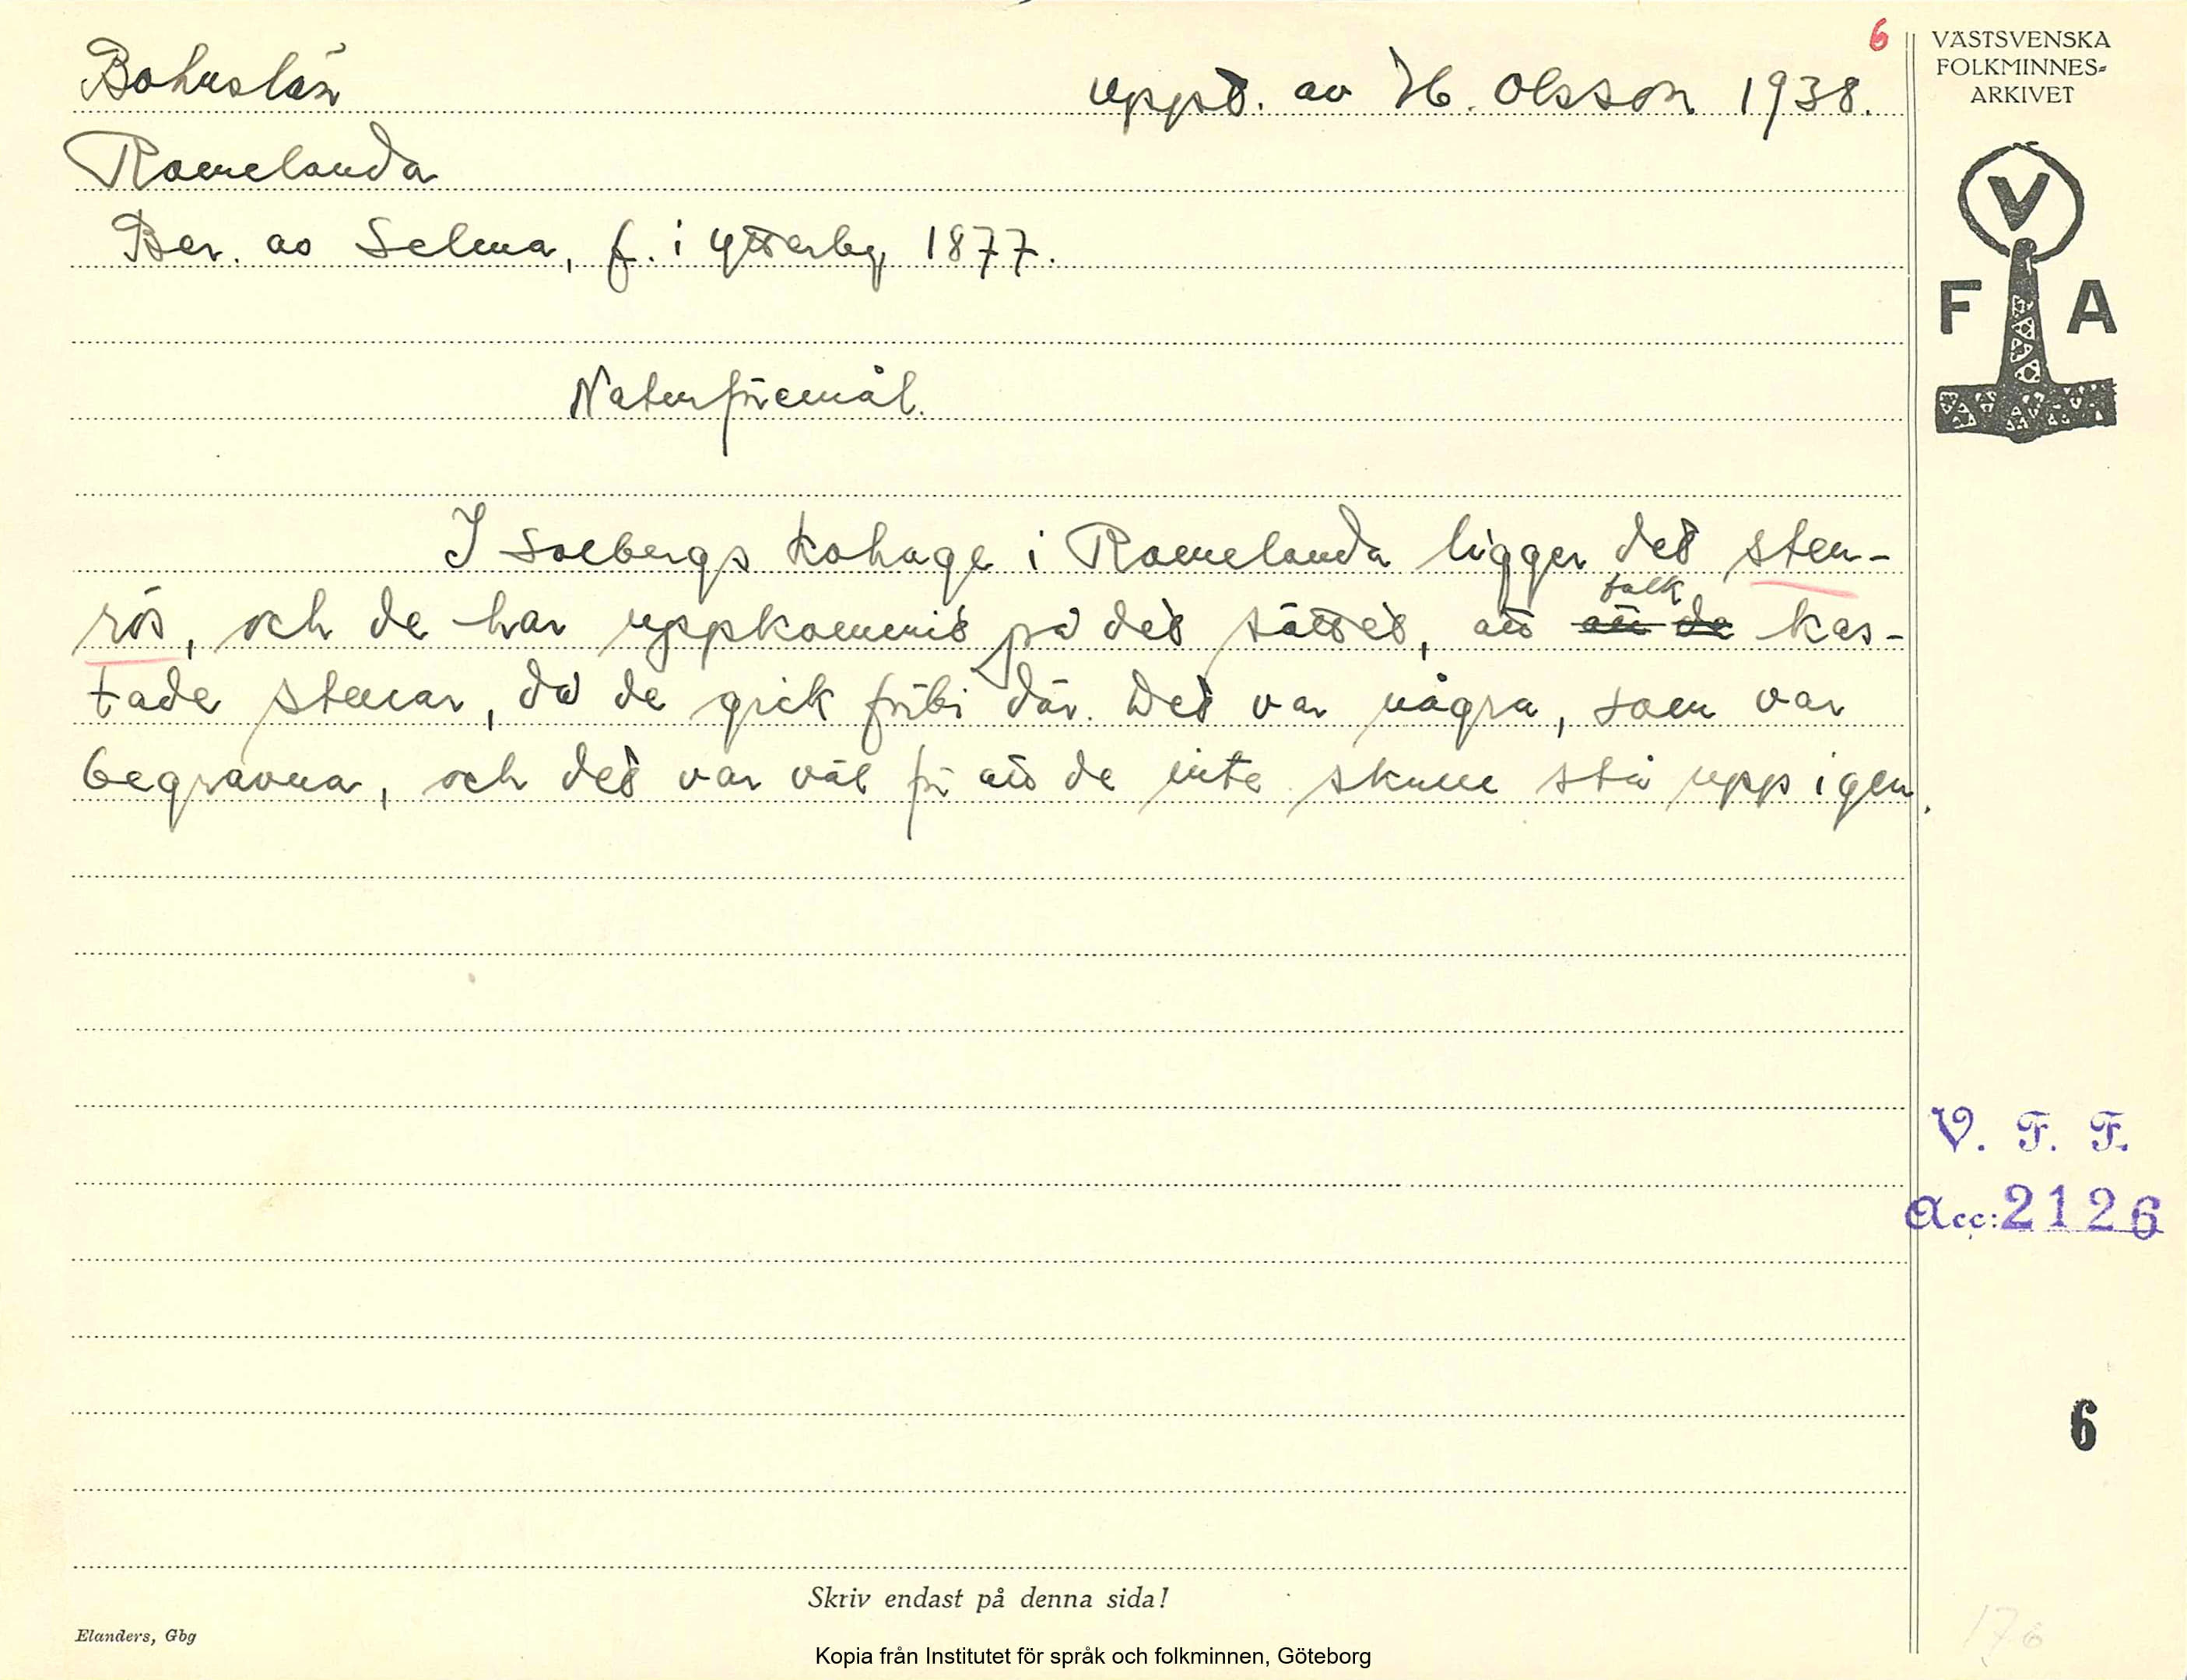 6
VÄSTSVENSKA
FOLKMINNES-
ARKIVET
V
F A
Bohuslän uppt. av H. Olsson 1938.
Romelanda
Ber. av Selma, f. i Ytterby, 1877.
Naturföremål.
I Solbergs kohage i Romelanda ligger det sten-
rös, och de har uppkommit på det sättet, att att de folk kas-
tade stenar, då de gick förbi där. Det var några, som var
begravna, och det var väl för att de inte skulle stå upp igen.
V. F. F.
Acc: 2126
6
Skriv endast på denna sida!
Elanders, Gbg
176
Kopia från Institutet för språk och folkminnen, Göteborg